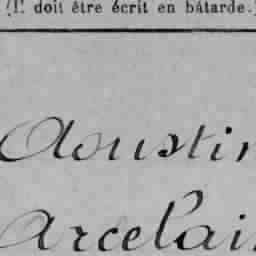 (Il doit être écrit en bâtarde.)
Aoustin
Arcelai